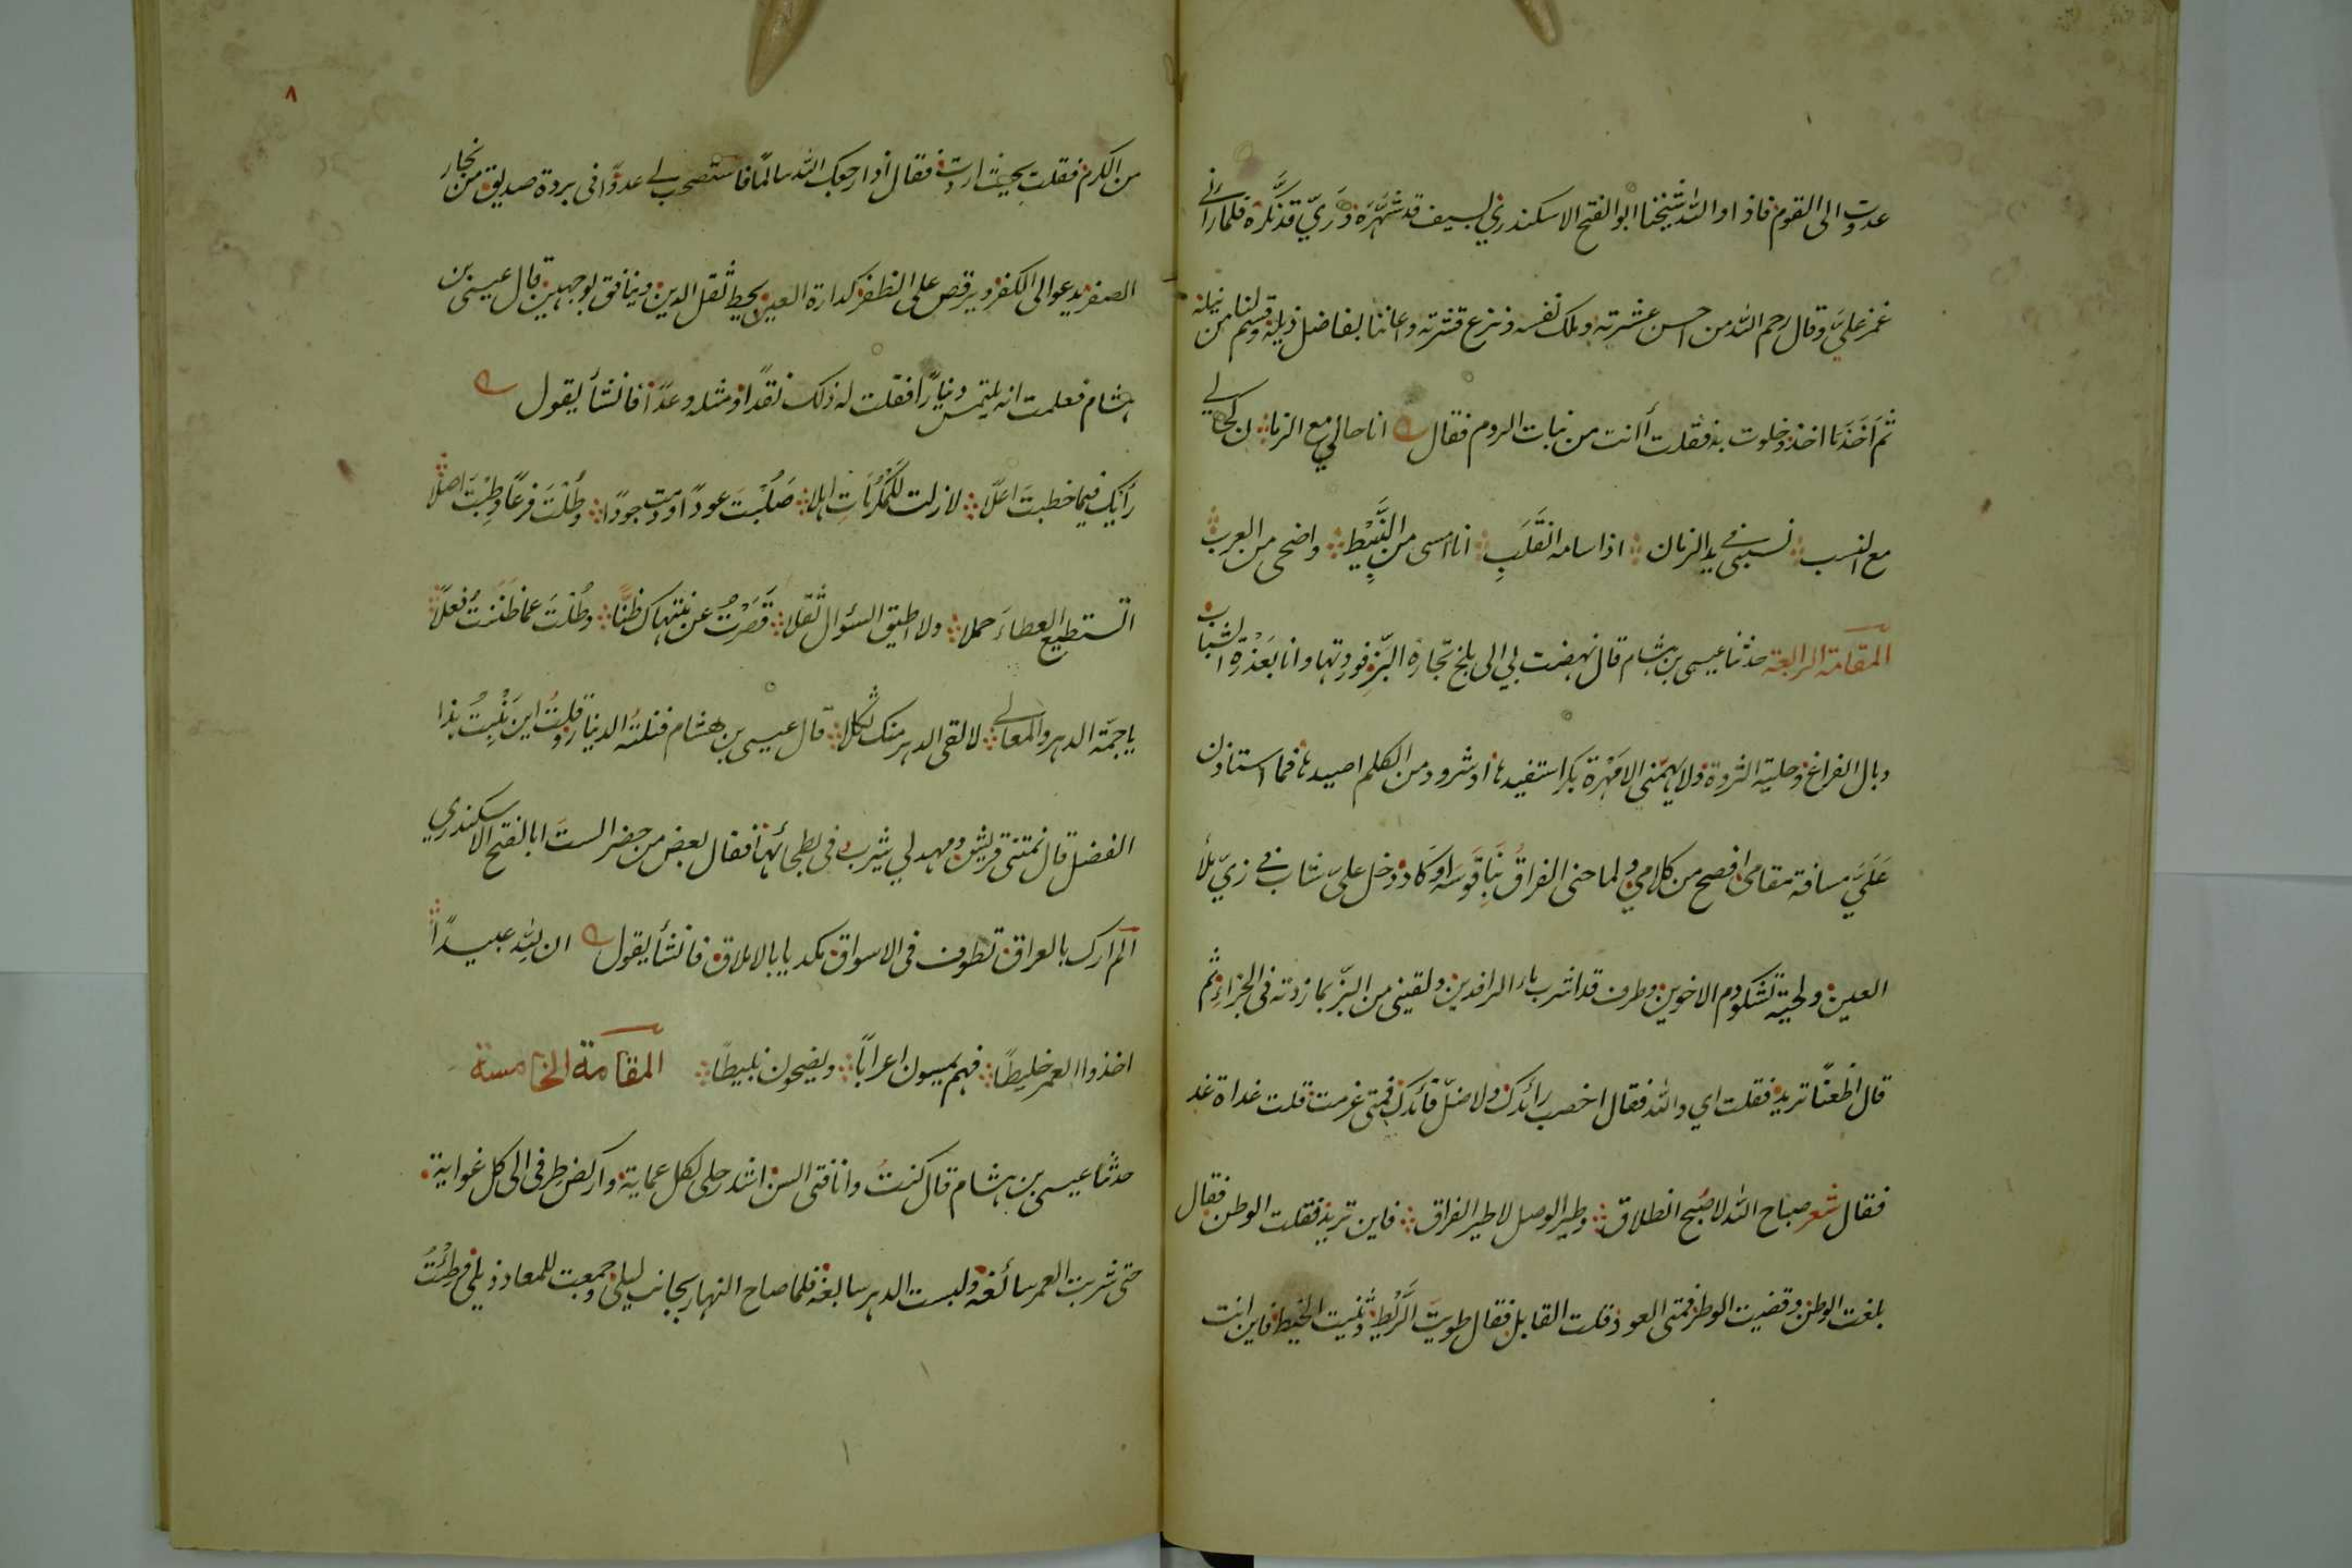 عدوت الى القوم فاذا والله شيخنا ابو الفتح الاسكندري بسيف قد شهره وزيّ قد نكره فلما رآني
غمز عليّ وقال رحم الله من احسن عشرته وملك نفسه ونزع قشرته واعاننا بفاضل ذيله وقسم لنا من نيله
ثم اخذ ما اخذ وخلوت به فقلت أانت من نبات الروم فقال انا حالي مع الزمان كحالي
مع النسب نسبتي في يد الزمان اذا سامه انقلب انا امسى من النبيط واضحى من العرب
المقامة الرابعة حدثنا عيسى بن هشام قال نهضت بي الى بلخ تجارة البز فوردتها وانا بعذرة الشباب
وبال الفراغ وحلية الثروة ولا يهمني الا مهرة بكر استفيدها او شرود من الكلم اصيدها فما استاذن
على مسافة مقامي افصح من كلامي ولما حنى الفراق بنا قوسه او كاد دخل عليّ شاب في زيّ ملأ
العين ولحية تشكو دم الاخوين وطرف قد اشرب ماء الرافدين ولقيني من البز بما زدته في الجزاء ثم
قال اظعنا تريد فقلت اي والله فقال اخصب رائدك ولا ضل قائدك فمتى عزمت قلت غداة غد
فقال شعر صباح الله لا صبح انطلاق وطير الوصل لا طير الفراق فاين تريد فقلت الوطن فقال
بلغت الوطن وقضيت الوطر فمتى العود قلت القابل فقال طويت الريط وثنيت الخيط فاين انت
٨
من الكرم فقلت بحيث اردت فقال اذا ارجعك الله سالما فاستصحب لي عدوا في بردة صديق من نجار
الصفر يدعو الى الكفر ويرقص على الظفر كدارة العين يحط ثقل الدين وينافق بوجهين قال عيسى بن
هشام فعلمت انه يلتمس دينارا فقلت له ذلك نقدا ومثله وعدا فانشأ يقول
رأيك فيما خطبت اعلا لا زلت للمكرمات اهلا صلبت عودا ودمت جودا وطلت فرعا وطبت اصلا
لا استطيع العطاء حملا ولا اطيق السؤال ثقلا قصرت عن منتهاك ظنا وطلت عما ظننت فعلا
يا رجمة الدهر والمعالي لا لقي الدهر منك ثكلا قال عيسى بن هشام فنلته الدينار وقلت اين منبت هذا
الفضل قال نمتني قريش ومهد لي شرب في بطحائها فقال بعض من حضر الست ابا الفتح الاسكندري
الم ارك بالعراق تطوف في الاسواق مكديا بالاملاق فانشأ يقول ان لله عبيدا
اخذوا العمر خليطا فهم يمسون اعرابا ويضحون نبيطا المقامة الخامسة
حدثنا عيسى بن هشام قال كنت وانا فتى السن اشد رحلي لكل عماية واركض طرفي الى كل غواية
حتى شربت العمر سائغه ولبست الدهر سابغه فلما صاح النهار بجانب ليلي وجمعت للمعاد ذيلي وطئت